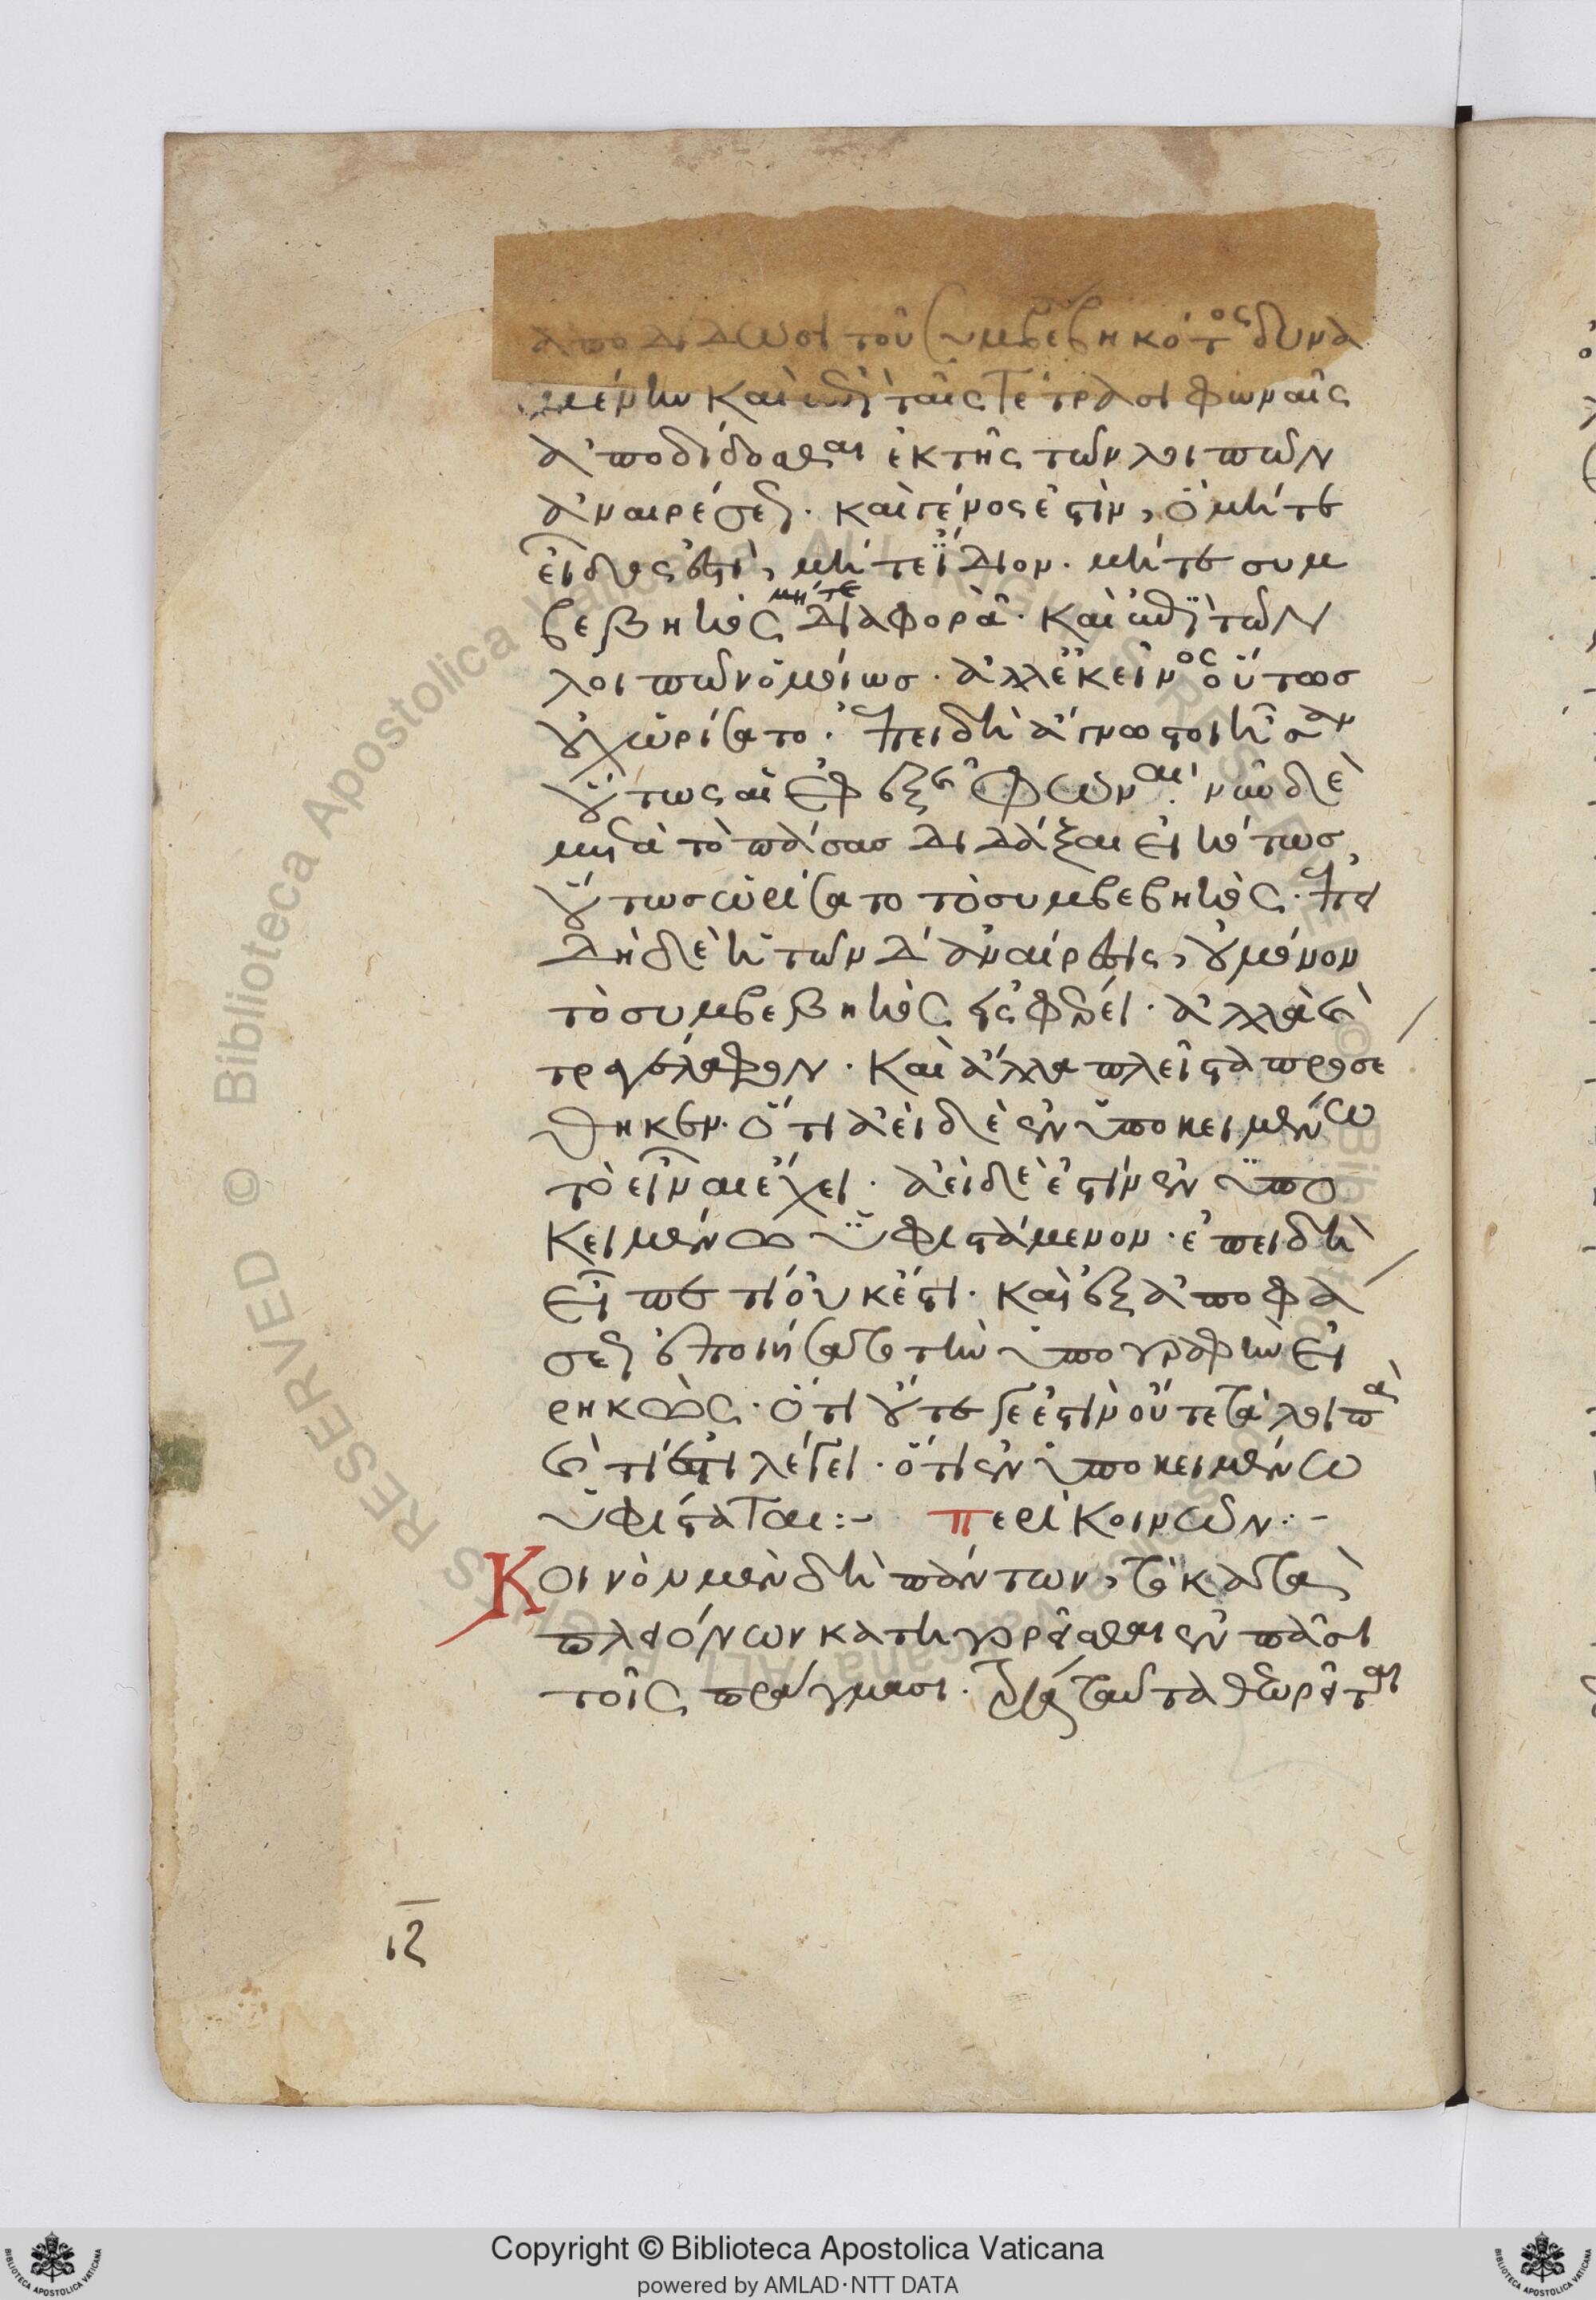 ἀποδίδωσι τοῦ συμβεβηκότος δυνα
μένην καὶ ἐπὶ ταῖς τέτρασι φωναῖς
ἀποδίδοσθαι ἐκ τῆς τῶν λοιπῶν
ἀναιρέσεως. καὶ γένος ἐστὶν, ὃ μήτε
εἶδος ἐστὶ, μήτε ἴδιον. μήτε συμ
βεβηκὸς μήτε διαφορὰ. καὶ ἐπὶ τῶν
λοιπῶν ὁμοίως. ἀλλ' ἐκεῖνος οὕτως
οὐχ ὡρίσατο. ἐπειδὴ ἄγνωστοι ἦσαν
οὕτως αἱ ἐφεξῆς φωναί. νῦν δὲ
μετὰ τὸ πάσας διδάξαι εἰκότως,
οὕτως ὡρίσατο τὸ συμβεβηκὸς. ἐπει
δὴ δὲ ἡ τῶν δ ἀναίρεσις, οὐ μόνον
τὸ συμβεβηκὸς εἰσφέρει. ἀλλὰ καὶ
τραγέλαφον. καὶ ἄλλα πλεῖστα προσέ
θηκεν. ὅτι ἀεὶ δὲ ἐν ὑποκειμένω
τὸ εἶναι ἔχει. ἀεὶ δέ ἐστιν ἐν ὑπο
κειμένω ὑφιστάμενον. ἐπειδὴ
εἶπε τί οὐκ ἔστι. καὶ ἐξ ἀποφά
σεως ἐποιήσατο τὴν ὑπογραφὴν εἰ
ρηκὼς. ὅτι οὔτε τόδε ἐστὶν οὔτε τὰ λοιπὰ
καὶ τί ἐστι λέγει. ὅτι ἐν ὑποκειμένω
ὑφίσταται:- περὶ κοινῶν:-
Κοινὸν μὲν δὴ πάντων, τὸ κατὰ
πλειόνων κατηγορεῖσθαι ἐν πᾶσι
τοῖς πράγμασι. τρία ταῦτα θεωρεῖται
ιζ
Copyright © Biblioteca Apostolica Vaticana
powered by AMLAD·NTT DATA